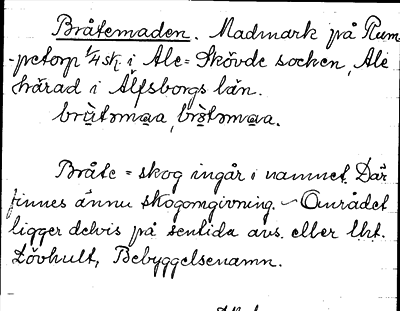 Bråtemaden. Madmark på Rum-
petorp 1/4 sk. i Ale-Skövde socken, Ale
härad i Älfsborgs län.
Bråte = skog ingår i namnet. Där
finnes ännu skogomgivning. - Området
ligger delvis på sentida avs. eller lht.
Lövhult, Bebyggelsenamn.